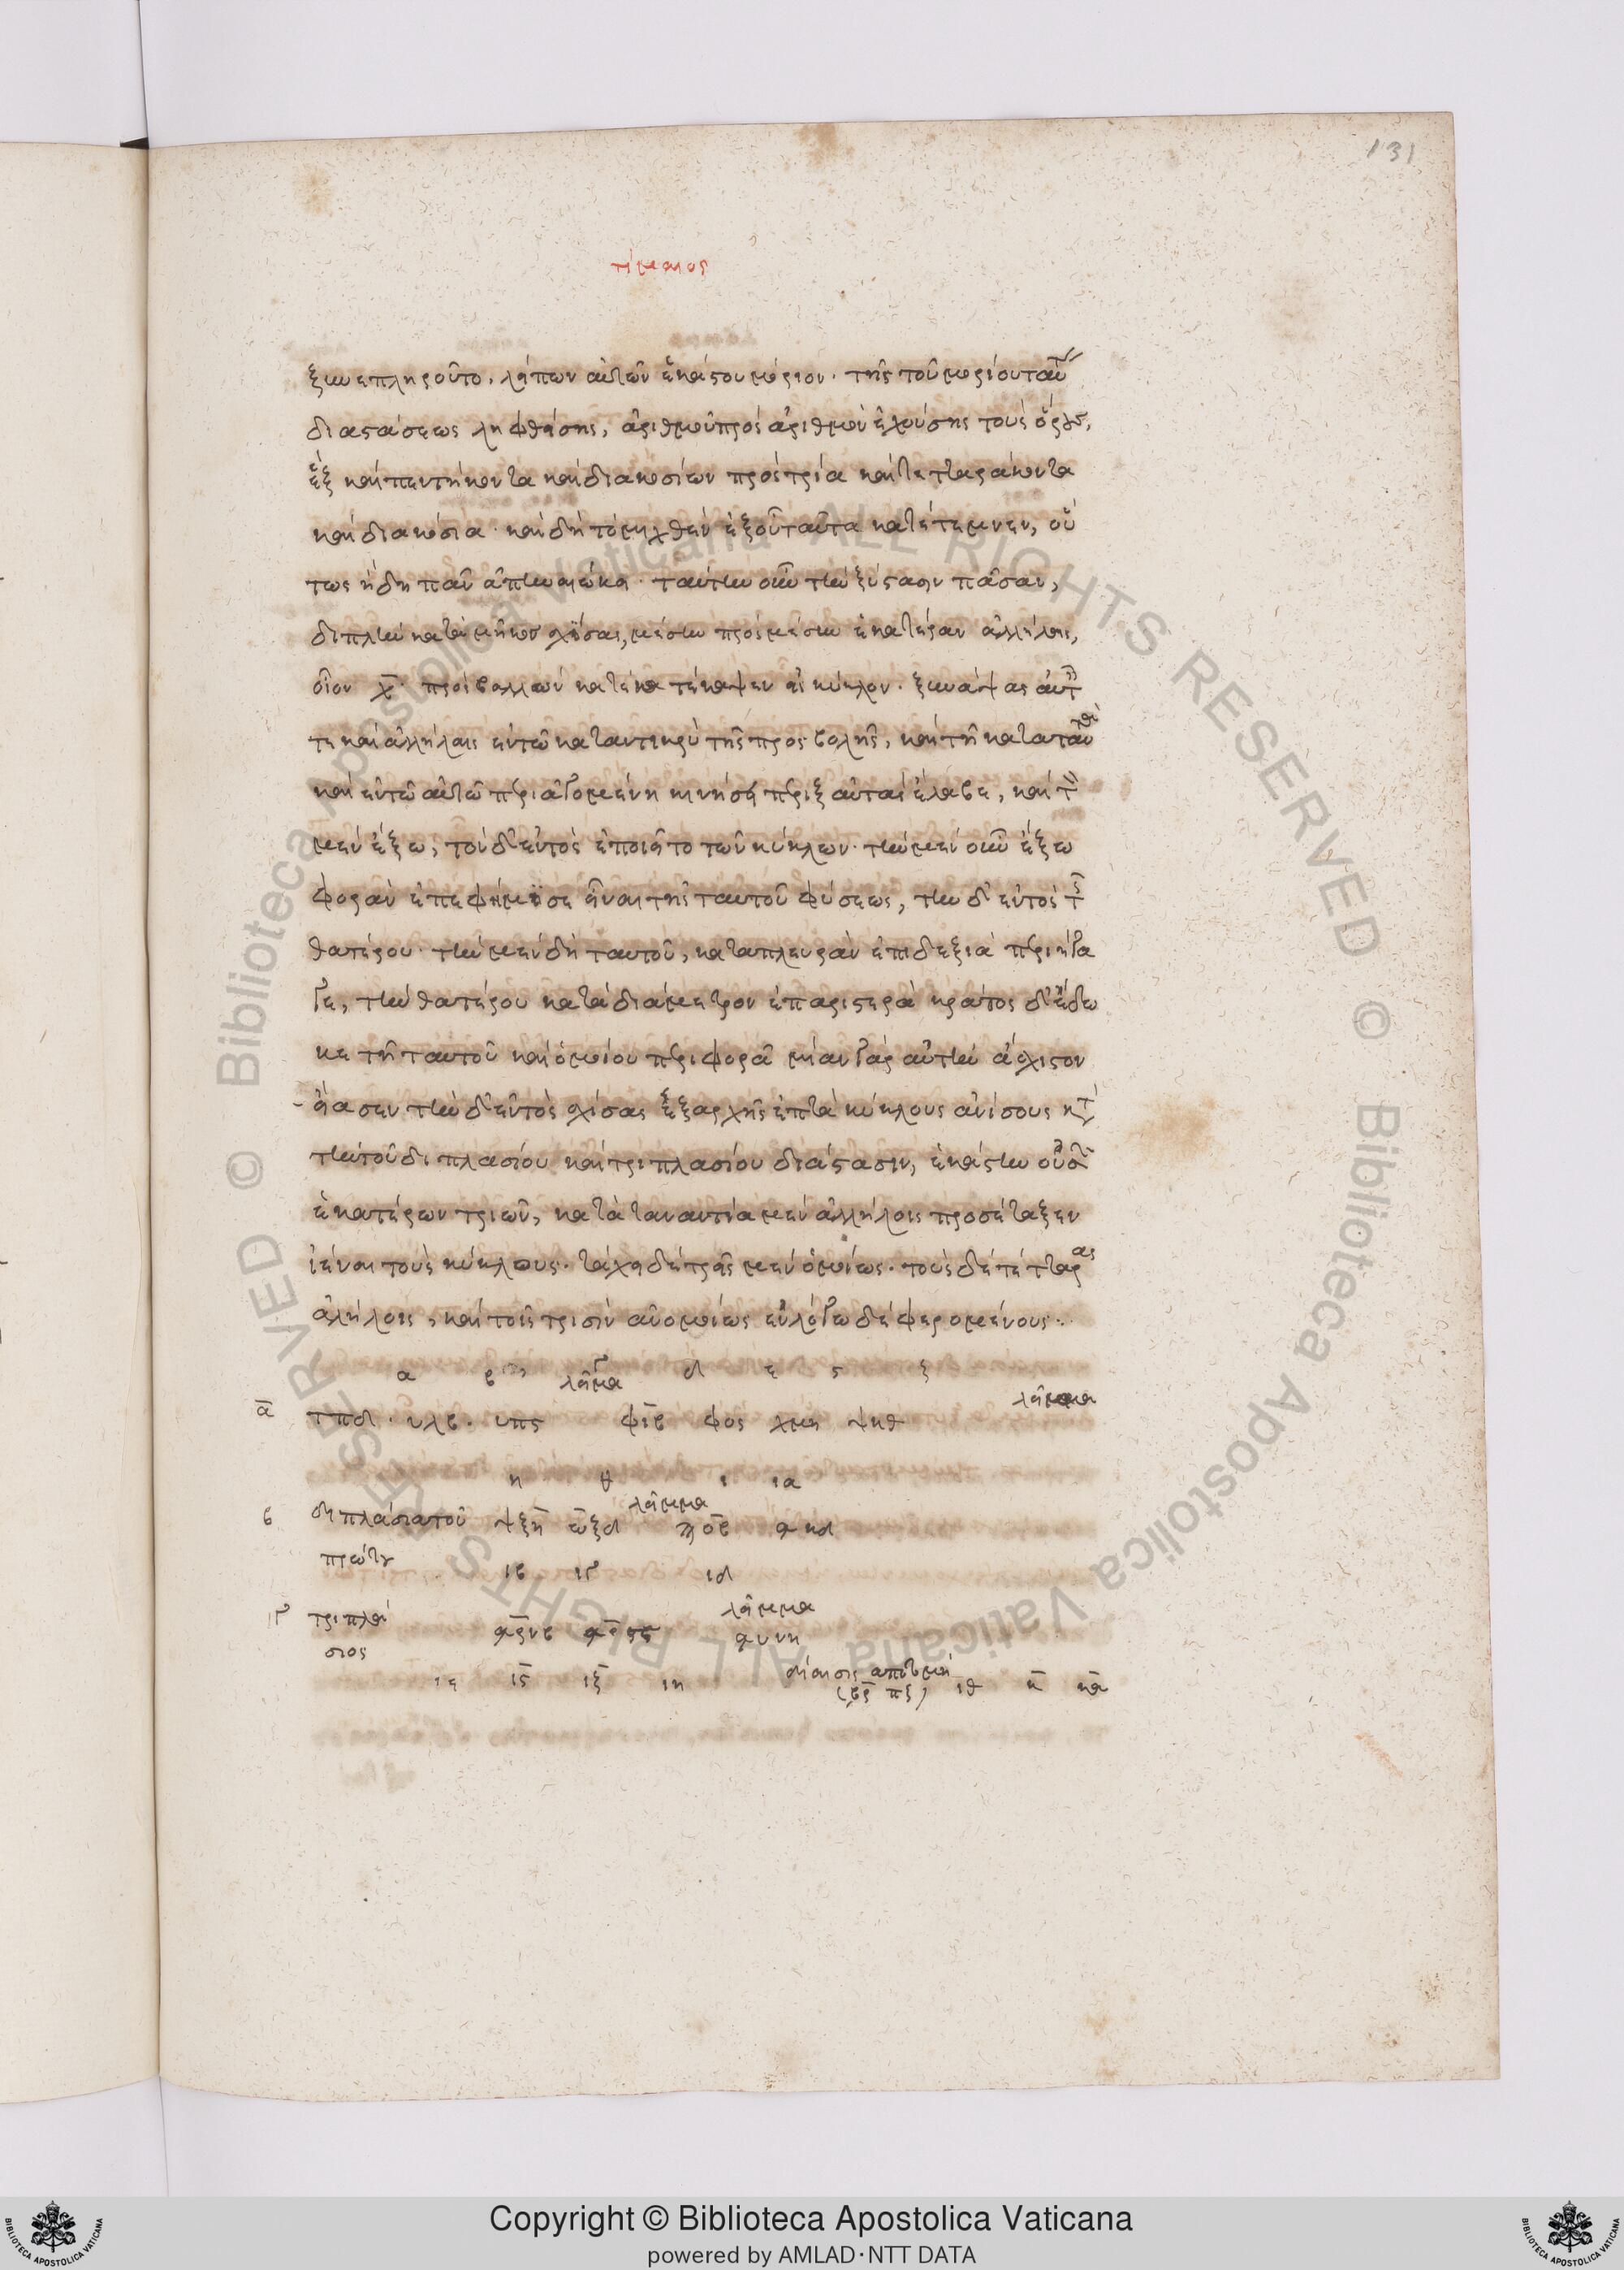 131
τίμαιος
ξυνεπληροῦτο, λείπων αὐτῶν ἑκάστου μόριον· τῆς τοῦ μορίου ταύτ
διαστάσεως ληφθείσης, ἀριθμοῦ πρὸς ἀριθμὸν ἐχούσης τοὺς ὅρους,
ἓξ καὶ πεντήκοντα καὶ διακοσίων πρὸς τρία καὶ τετταράκοντα
καὶ διακόσια· καὶ δὴ τὸ μιχθὲν ἐξ οὗ ταῦτα κατέτεμνεν, οὕ
τως ἤδη πᾶν ἀπανηλώκει· ταύτην οὖν τὴν ξύστασιν πᾶσαν,
διπλῆν κατὰ μῆκος σχίσας, μέσην πρὸς μέσην ἑκατέραν ἀλλήλαις,
οἷον χ̄· προσβαλλὼν κατέκαμψεν εἰς κύκλον· ξυνάψας αὑτ
τε καὶ ἀλλήλαις ἐν τῷ καταντικρὺ τῆς προσβολῆς, καὶ τῇ κατὰ ταυ
καὶ ἐν τῷ αὐτῷ περιαγομένη κινήσει πέριξ αὐτὰς ἔλαβε, καὶ τ
μὲν ἔξω, τὸν δ' ἐντὸς ἐποιεῖτο τῶν κύκλων· τὴν μὲν οὖν ἔξω
φορὰν ἐπεφήμισε εἶναι τῆς ταυτοῦ φύσεως, τὴν δ' ἐντὸς τ
θατέρου· τὴν μὲν δὴ ταυτοῦ, κατὰ πλευρὰν ἐπιδεξιὰ περιήγα
γε, τὴν θατέρου κατὰ διάμετρον ἐπαριστερὰ κράτος δ' ἔδω
κε τῇ ταυτοῦ καὶ ὁμοίου περιφορᾷ μίαν γὰρ αὐτὴν ἄσχιστον
εἴασεν τὴν δ' ἐντὸς σχίσας ἑξαρχῆς ἑπτὰ κύκλους ἀνίσους κτ
τὴν τοῦ διπλασίου καὶ τριπλασίου διάστασιν, ἑκάστην οὐσ
ἑκατέρων τριῶν, κατὰ ταναντία μὲν ἀλλήλοις προσέταξεν
ἰέναι τοὺς κύκλους· τάχει δὲ τρεῖς μὲν ὁμοίως· τοὺς δὲ τέτταρας
ἀλήλοις, καὶ τοῖς τρισὶν ἀνομοίως ἐν λόγῳ δὲ φερομένους:
α β γ δ ε ς ζ
λεῖμμα λεῖμμα
ᾱ τπδ · υλβ · υπς φιβ φος χμη ψκθ
η θ ι ια
λεῖμμα
β διπλάσια τοῦ ψξη ωξδ ϡοβ ακδ
πρώτου ιβ ιγ ιδ
λεῖμμα
γ τριπλά
σιος αρνβ ασϟς αυνη
ιε ις ιζ ιη ιθ κ κα